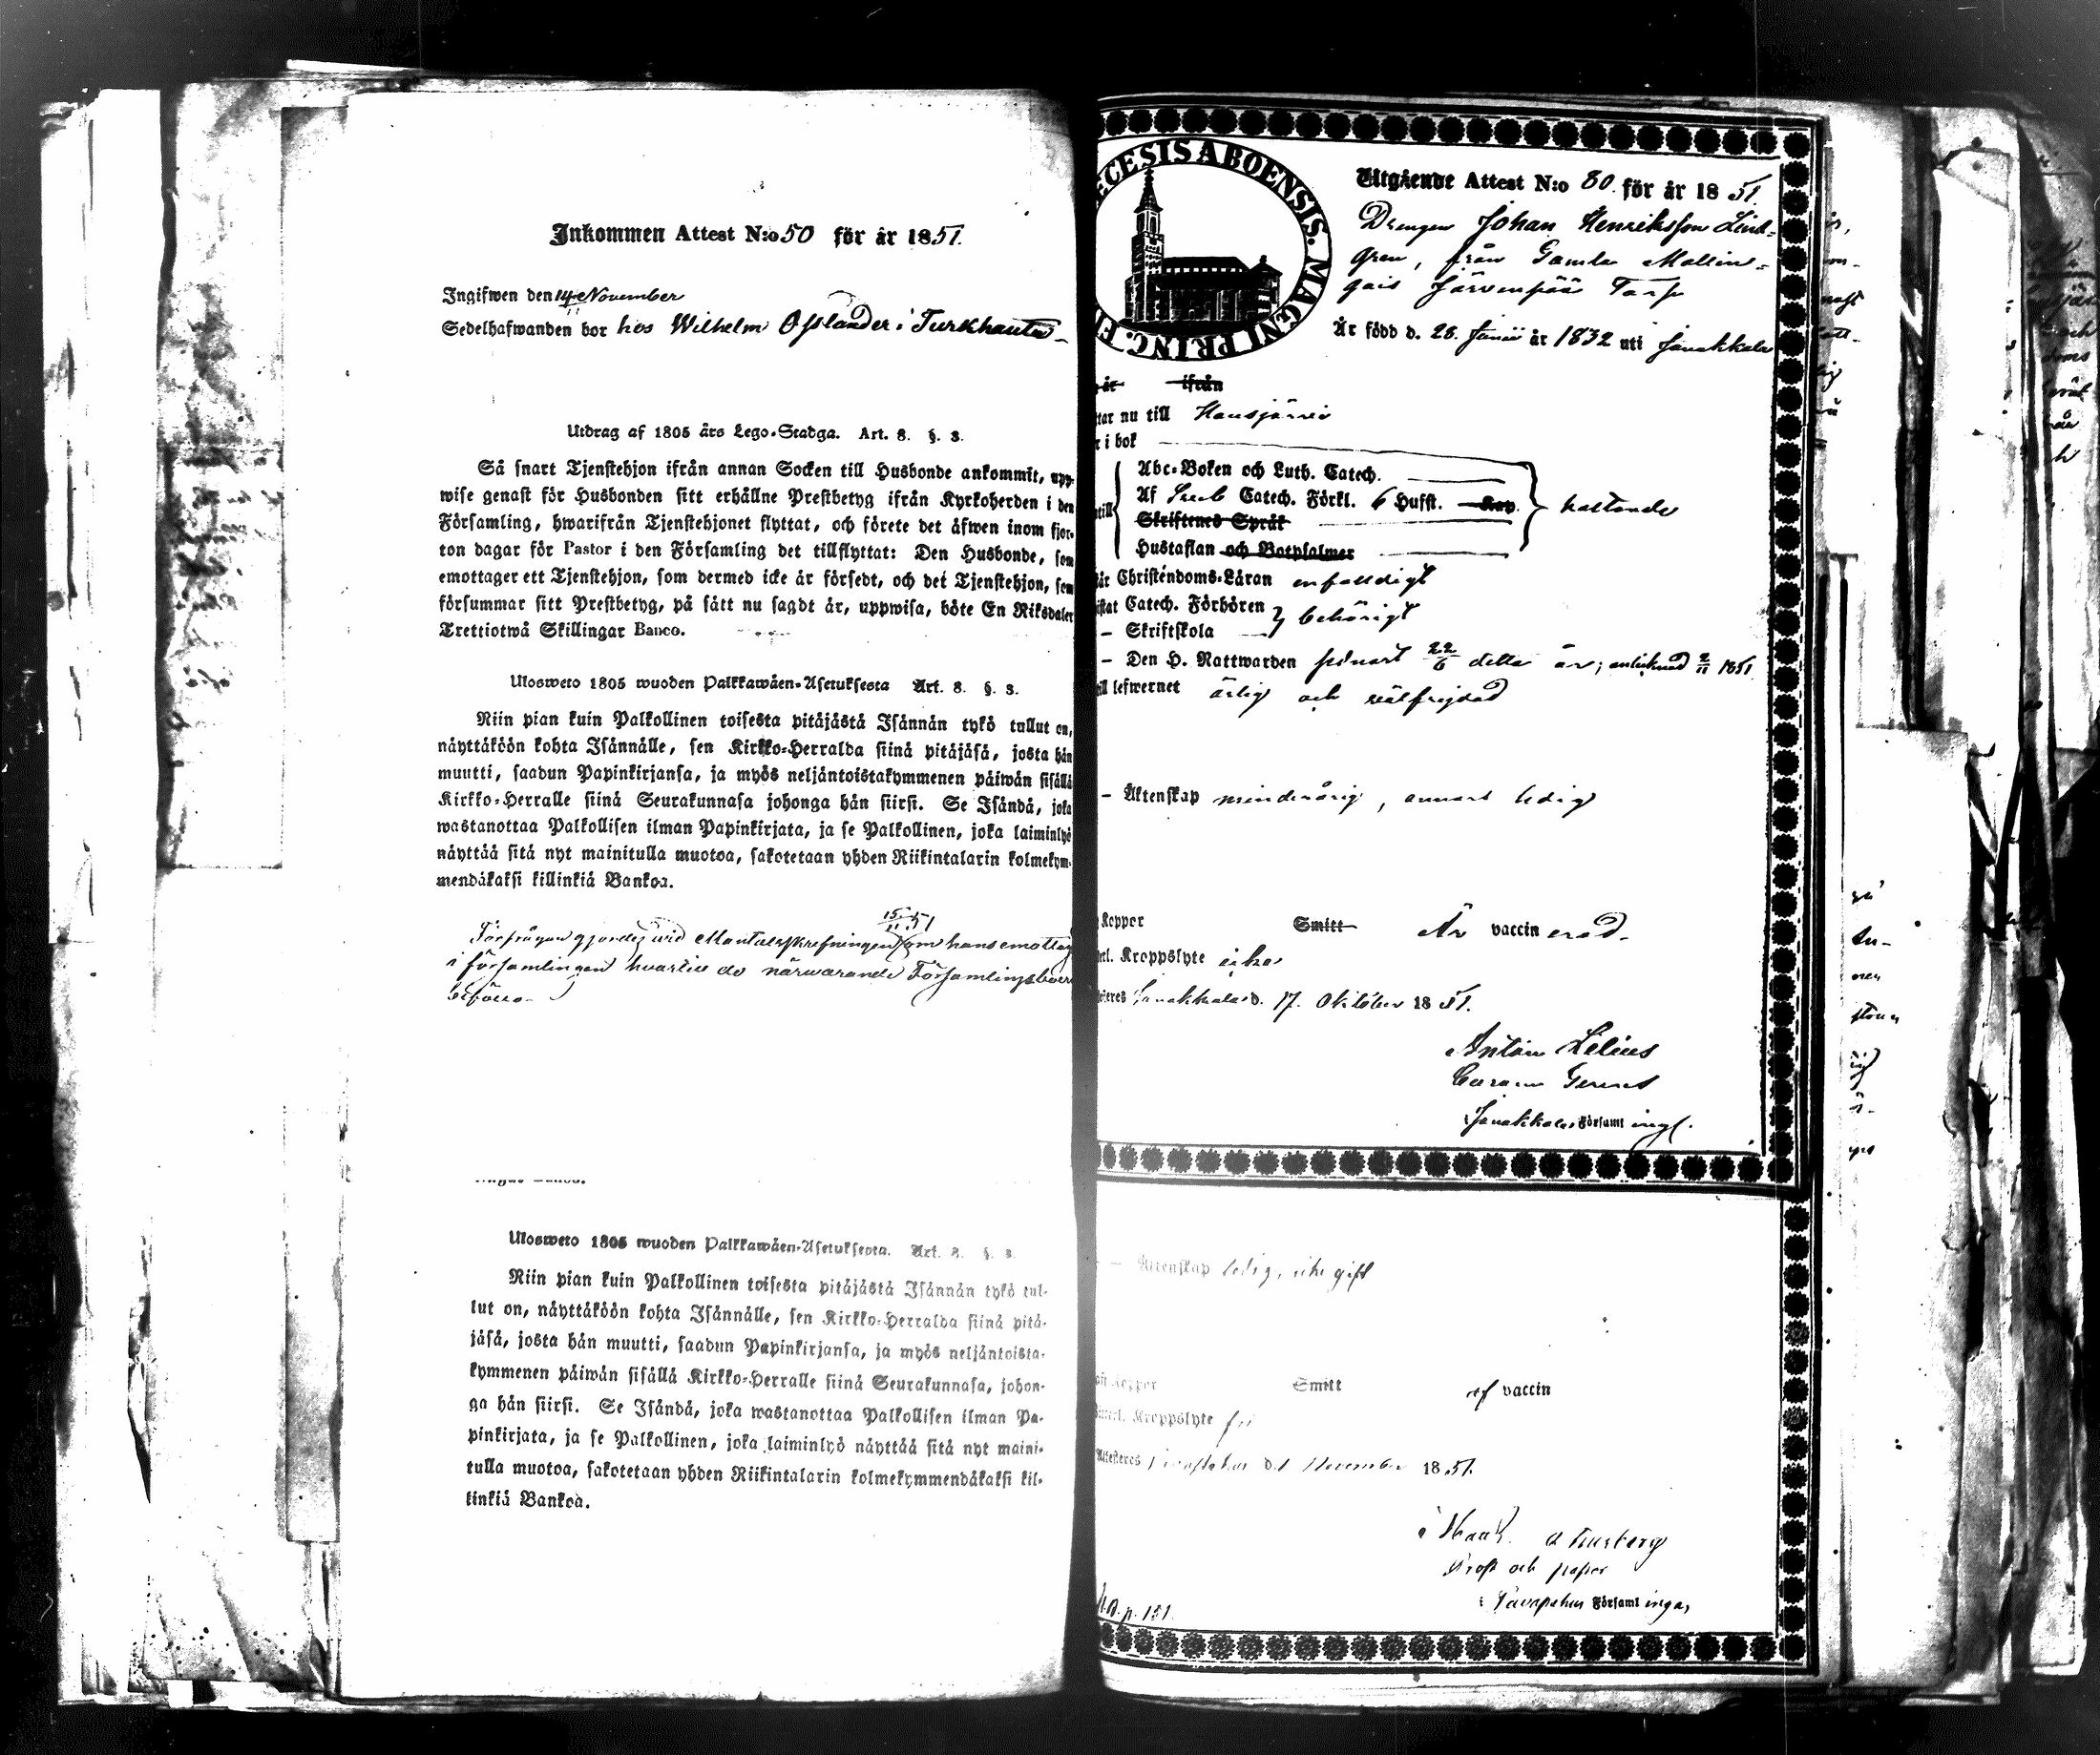 Inkommen Attest N:o 50 för år 1851.
Ingifwen den 14 November
Sedelhafwanden bor hos Wilhelm Osslander i Turkhauta
Utdrag af 1805 års Lego-Stadga. Art. 8. §. 3.
Så snart Tjenstehjon ifrån annan Socken till Husbonde ankommit, upp-
wise genast för Husbonden sitt erhållne Prestbetyg ifrån Kyrkoherden i den
Församling, hwarifrån Tjenstehjonet flyttat, och förete det äfwen inom fjor-
ton dagar för Pastor i den Församling det tillflyttat: Den Husbonde, som
emottager ett Tjenstehjon, som dermed icke är försedt, och det Tjenstehjon, som
försummar sitt Prestbetyg, på sätt nu sagdt är, uppwisa, böte En Riksdaler
Trettiotwå Skillingar Banco.
Ulosweto 1805 wuoden Palkkawäen-Asetuksesta Art. 8. §. 3.
Niin pian kuin Palkollinen toisesta pitäjästä Isännän tykö tullut on,
näyttäköön kohta Isännälle, sen Kirkko-Herralda siinä pitäjäsä, josta hän
muutti, saadun Papinkirjansa, ja myös neljäntoistakymmenen päiwän sisällä
Kirkko-Herralle siinä Seurakunnasa johonga hän siirsi. Se Isändä, joka
wastanottaa Palkollisen ilman Papinkirjata, ja se Palkollinen, joka laiminlyö
näyttää sitä nyt mainitulla muotoa, sakotetaan yhden Riikintalarin kolmekym-
mendäkaksi killinkiä Bankoa.
15/11 51
Förfrågan gjordes wid Mantalsskrefningen om hans emottag
i församlingen hwartill de närwarande Församlingsboer
biföllo.
Ulosweto 1805 wuoden Palkkawäen-Asetuksesta. Art. 8. §. 3.
Niin pian kuin Palkollinen toisesta pitäjästä Isännän tykö tul-
lut on, näyttäköön kohta Isännälle, sen Kirkko-Herralda siinä pitä-
jäsä, josta hän muutti, saadun Papinkirjansa, ja myös neljäntoista-
kymmenen päiwän sisällä Kirkko-Herralle siinä Seurakunnasa, johon-
ga hän siirsi. Se Isändä, joka wastanottaa Palkollisen ilman Pa-
pinkirjata, ja se Palkollinen, joka laiminlyö näyttää sitä nyt maini-
tulla muotoa, sakotetaan yhden Riikintalarin kolmekymmendäkaksi kil-
linkiä Bankoa.
ECESIS ABOENSIS. MAGNI PRINC. F
Utgående Attest N:o 80 för år 1851.
Drengen Johan Henriksson Lind-
gren, från Gamla Mallin-
gais Järvenpää Torp
Är född d. 28. Junii år 1832 uti Janakkala
år ifrån
tar nu till Hausjärvi
r i bok
Abc-Boken och Luth. Catech.
Af Catech. Förkl. 6 Hufst. Kap.
Skriftenes Språk
Hustaflan och Botpsalmer
till
hållande
år Christendoms-Läran enfaldigt
istat Catech. Förhören
– Skriftskola
behörigt
– Den H. Nattwarden senast 22/6 detta år; antecknad 2/11 1851
ill lefwernet ärlig och välfrejdad
– Äktenskap minderårig, annars ledig
Koppor Smitt Är vaccinerad.
terl. Kroppslyte icke
steres Janakkala d. 17. Oktober 1851.
Anton Lilius
Janakkala Församl ingl.
– Äktenskap ledig, icke gift
Koppor Smitt af vaccin
terl. Kroppslyte fri
Attesteres d. 1 November 1851.
Prost och
Församl ingar
p. 151.